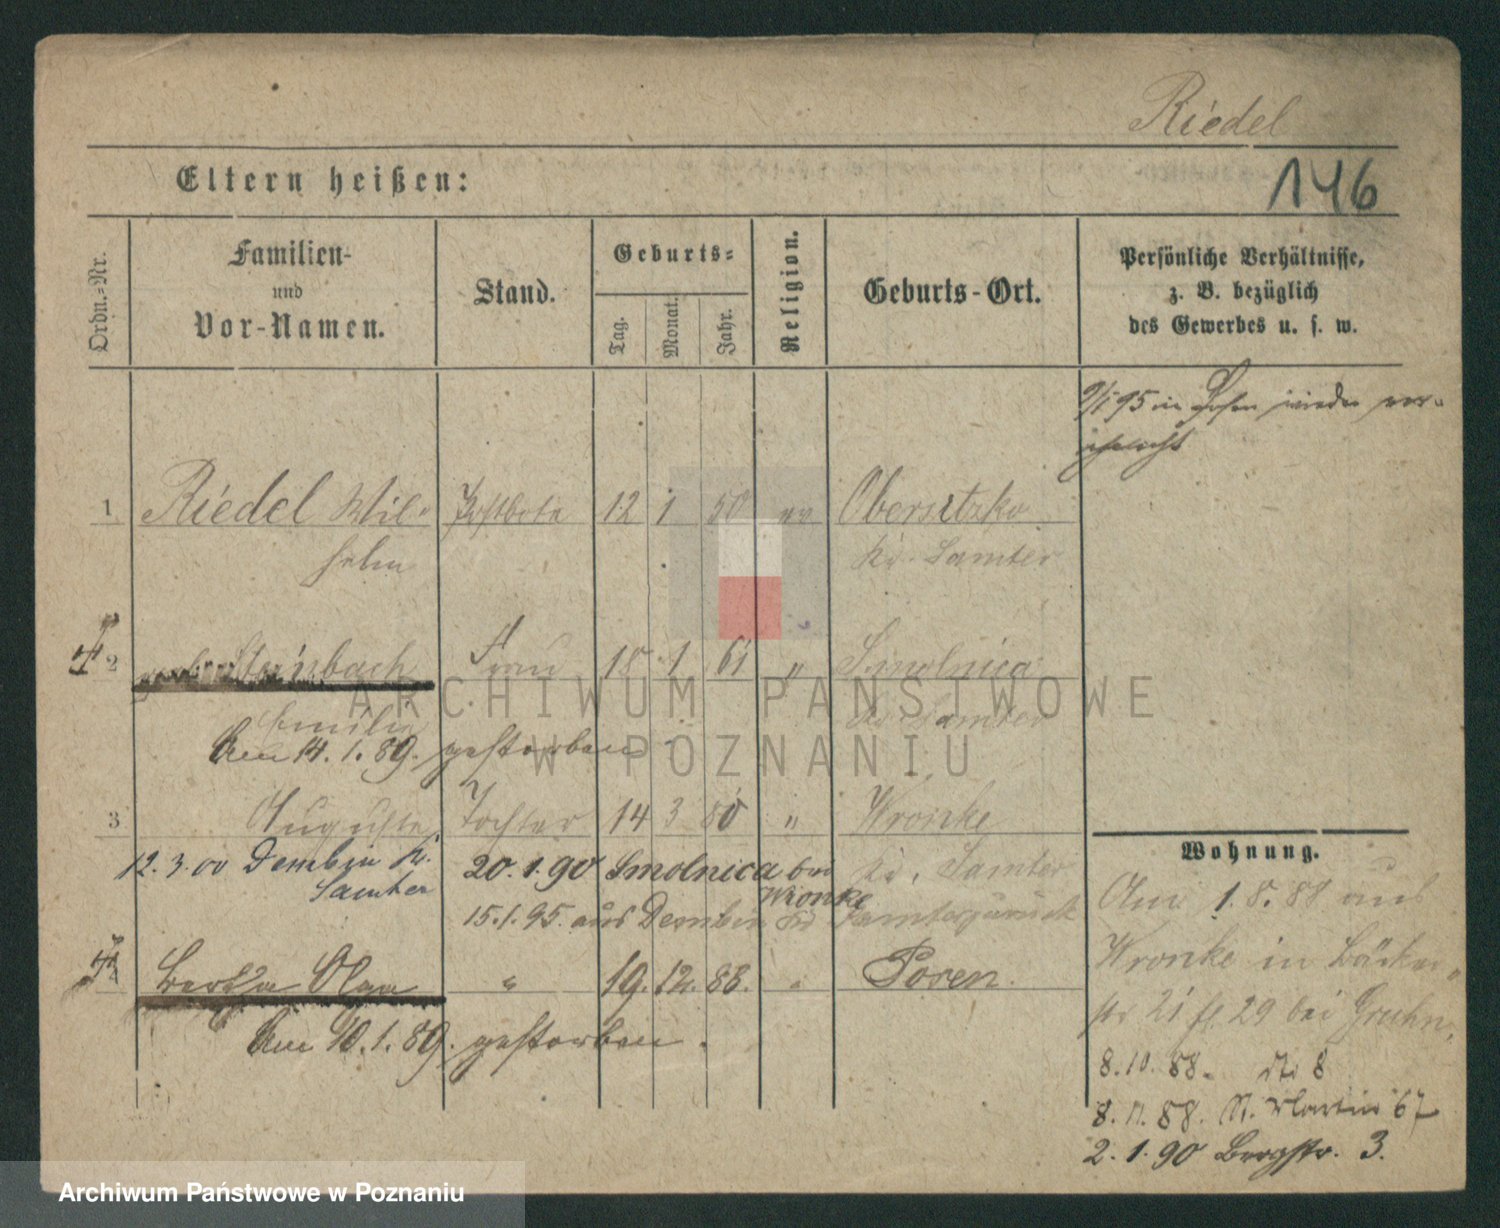 Riedel
Eltern heißen:
146
Ordn.-Nr.
Familien-
und
Vor-Namen.
Stand.
Geburts-
Tag.
Monat.
Jahr.
Religion.
Geburts-Ort.
Persönliche Verhältnisse,
z. B. bezüglich
des Gewerbes u. s. w.
95 in Posen wieder ver-
ehelicht
1 Riedel Wil- Postbote 12 1 50 ev Obersitzko
helm Kr. Samter
2 Steinbach Frau 18 1 61 " Smolnica
Emilie Kr. Samter
Am 14.1.89. gestorben
3 Auguste, Tochter 14 3 80 " Wronke
12.3.00 Dembin Kr. 20.1.90 Smolnica bei Kr. Samter
Samter Wronke
15.1.95. aus Dembin Kr Samter zurück
4 Bertha Olga " 19. 12. 88. " Posen.
Am 10.1.89. gestorben.
Wohnung.
Am 1.8.88 aus
Wronke in Bäcker-
str 21 29 bei Gruhn,
8.10.88. 8
8.11.88. St. Martin 67
2.1.90 Bergstr. 3.
ARCHIWUM PAŃSTWOWE
W POZNANIU
Archiwum Państwowe w Poznaniu